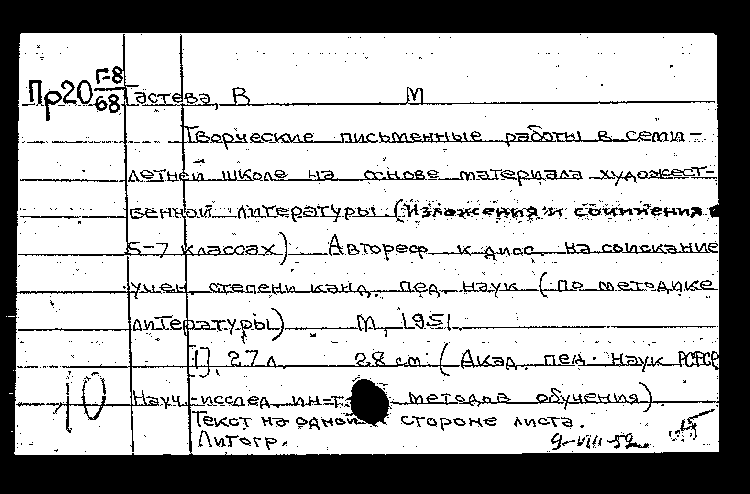 Пр20 Г-8/68 Гастева, В М
Творческие письменные работы в семи-
летней школе на основе материала художест-
венной литературы (Изложения и сочинения в
5-7 классах). Автореф. к дисс. на соискание
учен. степени канд. пед. наук (по методике
литературы) М, 1951.
[1], 27 л. 28 см. (Акад. пед. наук РСФСР
Науч.-исслед. ин-т методов обучения).
10
Текст на одной стороне листа.
Литогр. 9-VIII-52